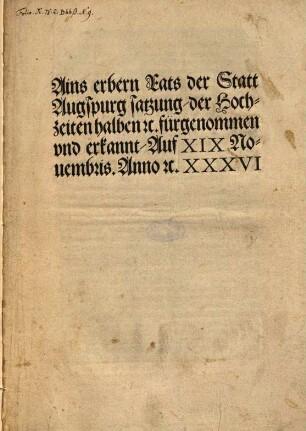 Ains erbern Rats der Statt
Augspurg satzung/der Hoch-
zeiten halben ꝛc. fürgenommen
vnd erkannt/Auf XIX No-
uembris. Anno ꝛc. XXXVI